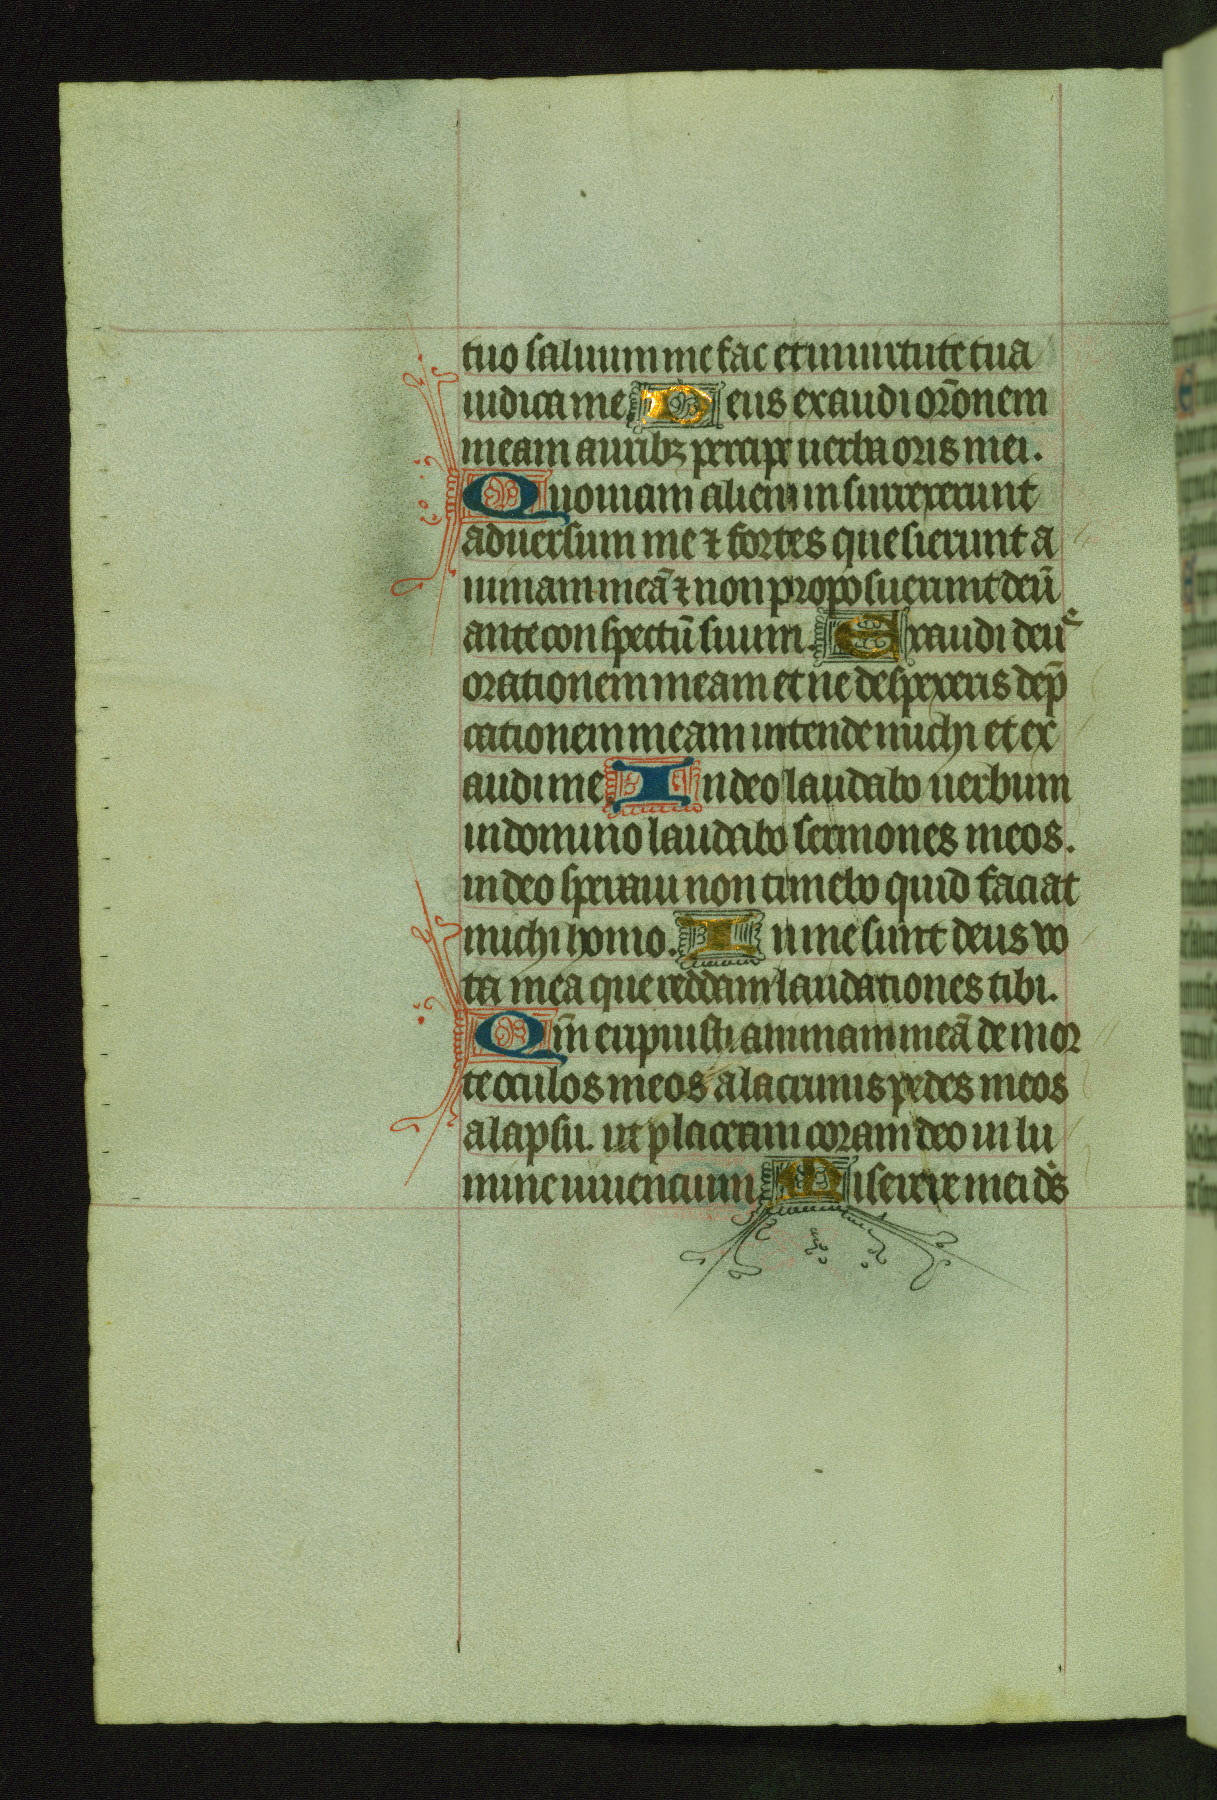 tuo saluum me fac et in uirtute tua
iudica me Deus exaudi orōnem
meam auribꝫ percipe uerba oris mei.
Quoniam alieni insurrexerunt
aduersum me ⁊ fortes quesierunt a
nimam meā ⁊ non proposuerunt deū
ante conspectū suum. Exaudi deus
orationem meam et ne despexeris dep̄
cationem meam intende michi et ex
audi me In deo laudabo uerbum
in domino laudabo sermones meos.
in deo speraui non timebo quid faciat
michi homo. In me sunt deus vo
ta mea que reddam laudationes tibi.
Qm̄ eripuisti animam meā de mor
te oculos meos a lacrimis pedes meos
a lapsu. ut placeam coram deo in lu
mine uiuencium Miserere mei ds̄